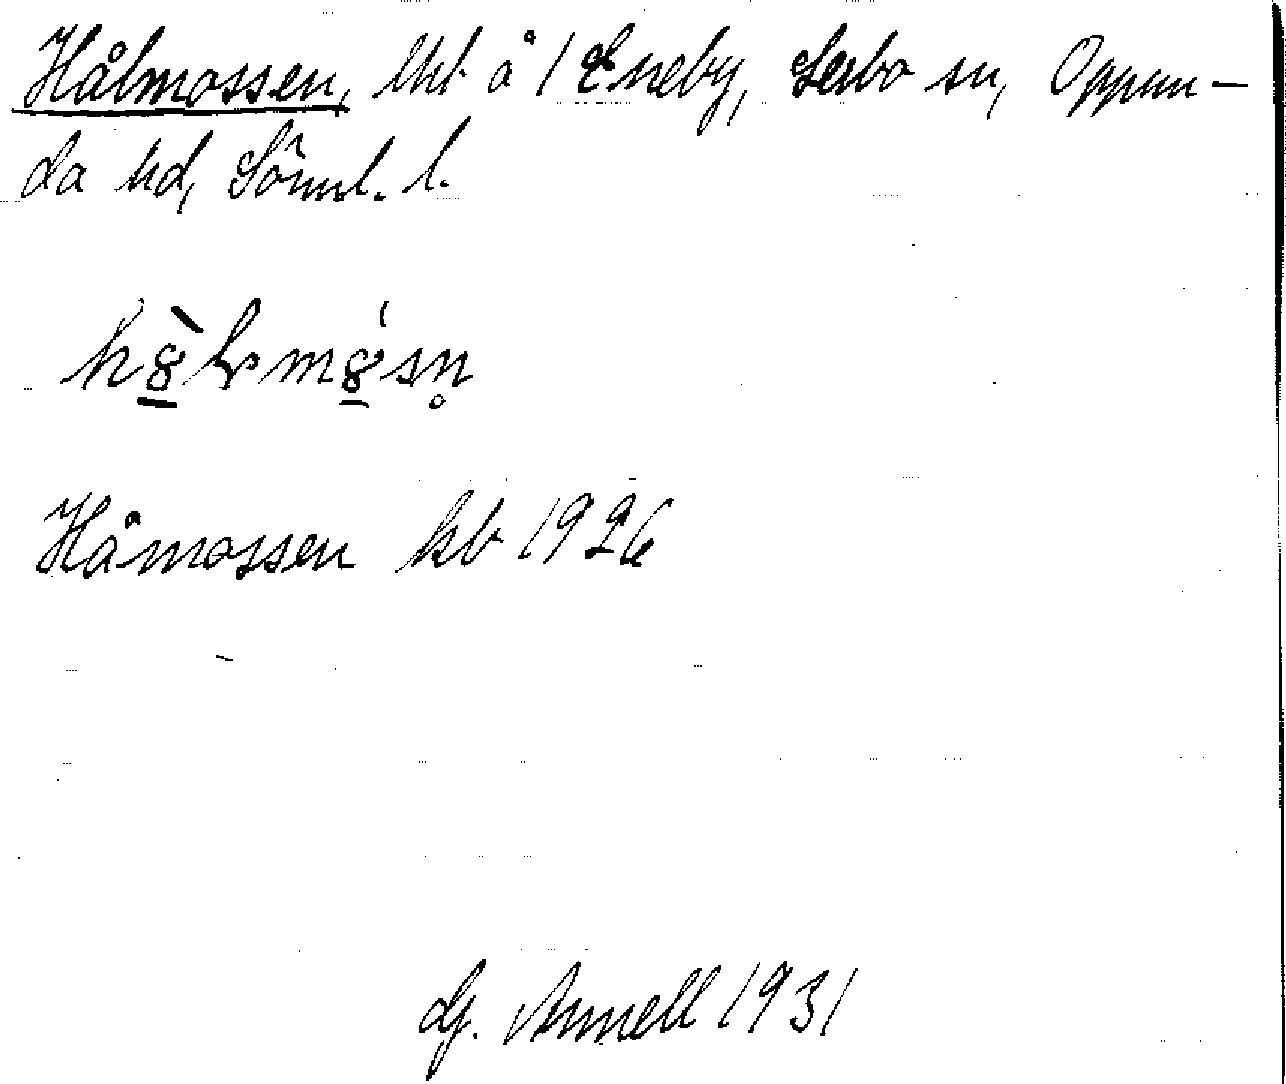 Hålmossen, lht å 1 Eneby, Lerbo sn, Oppun-
da hd, Söml. l.
Håmossen kb 1926
G. Annell 1931